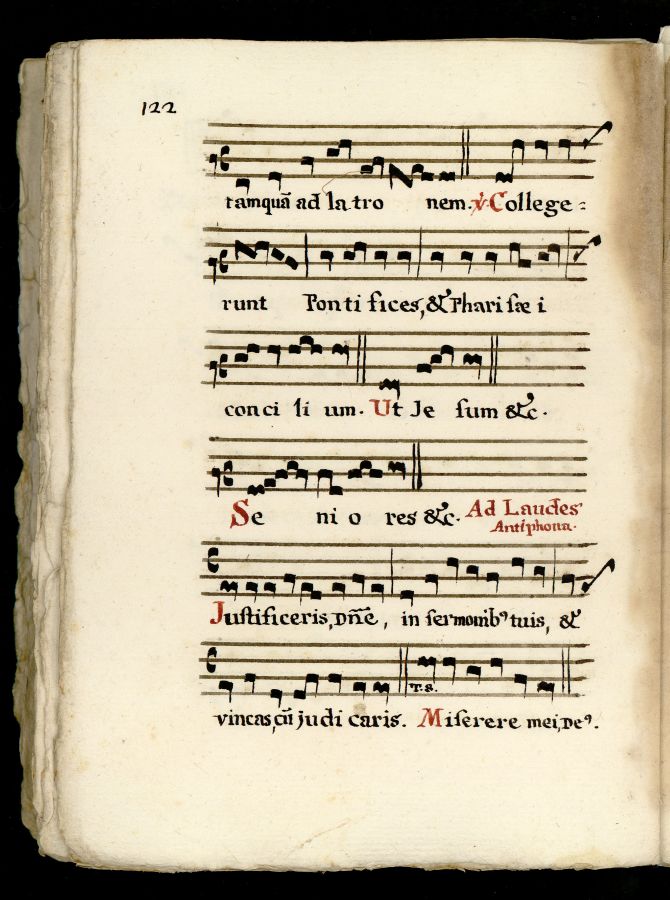 122
tamquã ad la tro nem. ℣. College=
runt Ponti fices, & Phari sæ i
con ci li um. Ut Je sum &c.
Se ni o res &c. Ad Laudes
Antiphona.
Justificeris, Dñe, in sermonibꝰ tuis, &
T. 8.
vincas, cũ judi caris. Miserere mei, Deꝰ.